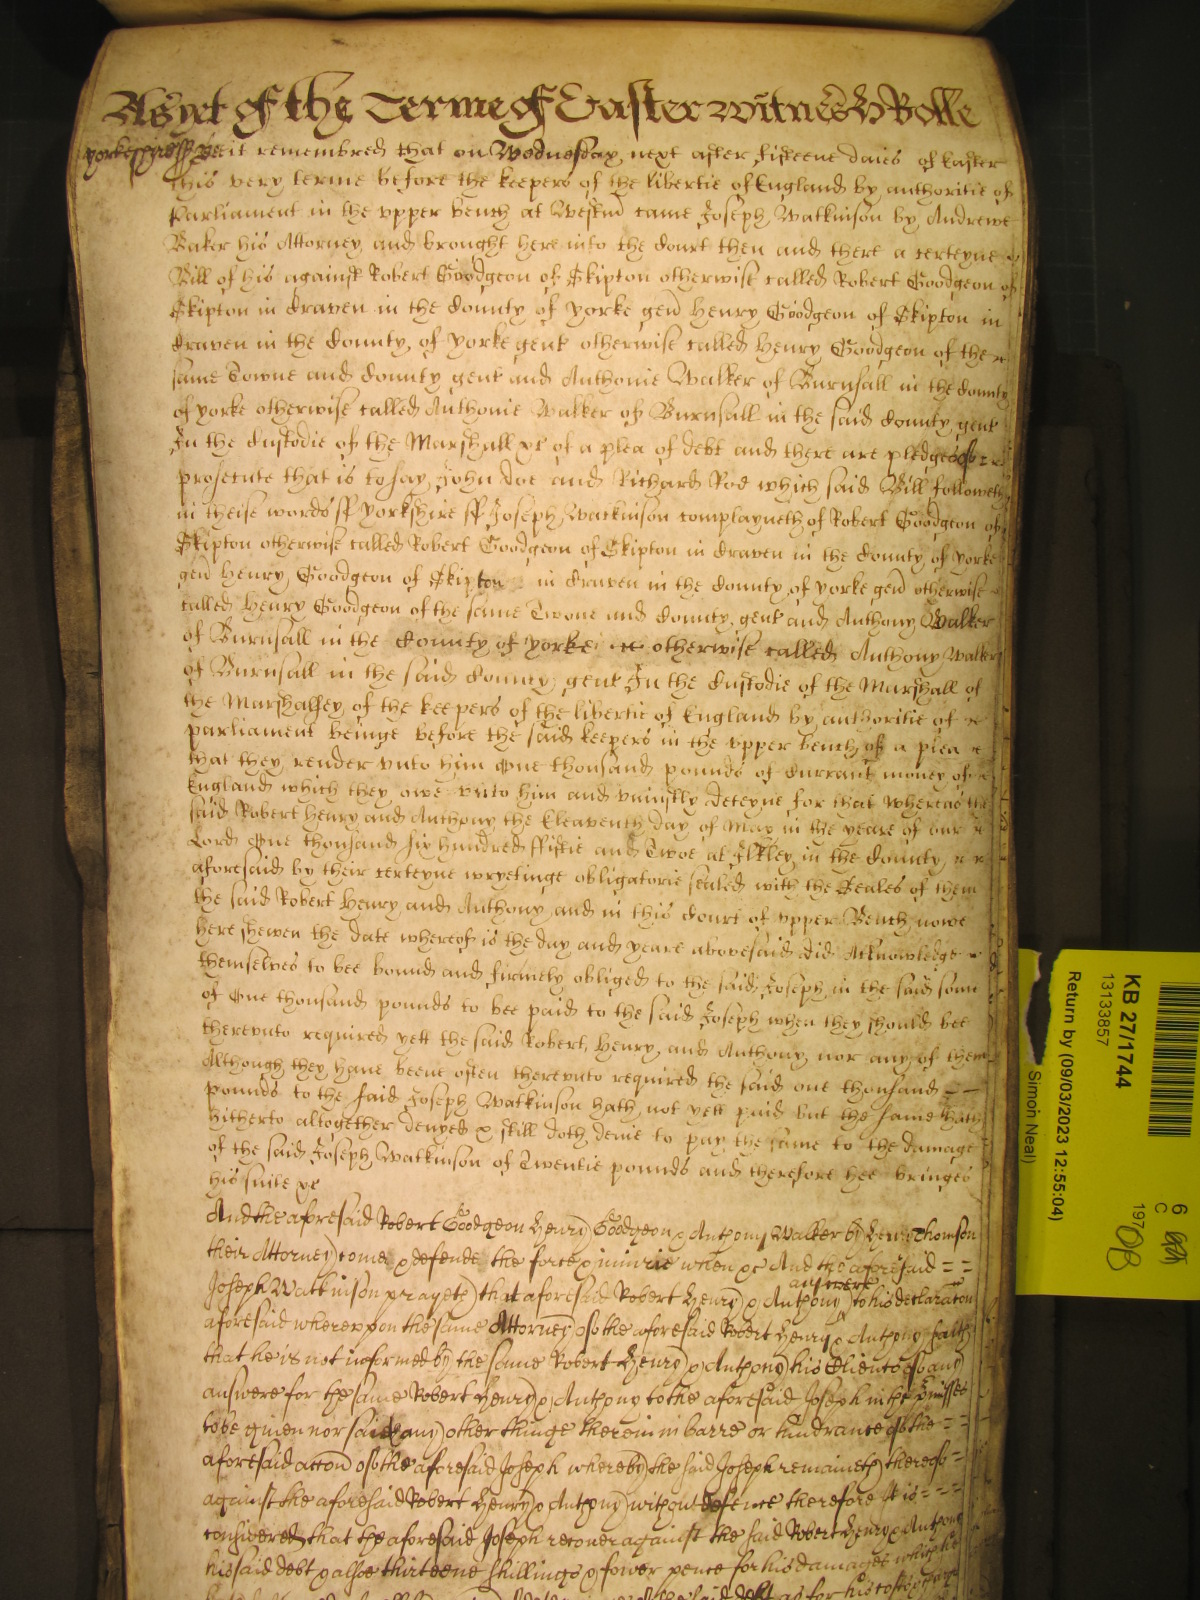 As yet of the Terme of Easter witnes H Rolle
Yorkeshire ss Bee it remembred that on Wednesday next after fifteene daies of Easter
this very terme before the keepers of the libertie of England by authoritie of
Parliament in the vpper bench at Westmr came Joseph Watkinson by Andrewe
Baker his Attorney and brought here into the Court then and there a certeyne
Bill of his against Robert Goodgeon of Skipton otherwise called Robert Goodgeon of
Skipton in Craven in the County of yorke gen Henry Goodgeon of Skipton in
Craven in the County of yorke gent otherwise called Henry Goodgeon of the
same Towne and County gent and Anthonie Walker of Burnsall in the County
of yorke otherwise called Anthonie Walker of Burnsall in the said County gent
In the Custodie of the Marshall &c of a plea of debt and there are pledges of
prosecute that is to say John Doe and Richard Roe which said Bill followeth
in theise words ss yorkshire ss Joseph Watkinson complayneth of Robert Goodgeon of
Skipton otherwise called Robert Goodgeon of Skipton in Craven in the County of yorke
gen Henry Goodgeon of Skipton in Craven in the County of yorke gen otherwise
called Henry Goodgeon of the same Towne and County gent and Anthony Walker
of Burnsall in the County of yorke otherwise called Anthony Walker
of Burnsall in the said County gent In the Custodie of the Marshall of
the Marshalsey of the keepers of the libertie of England by authoritie of
parliament beinge before the said keepers in the vpper bench of a plea
that they render vnto him One thousand pounds of Currant money of
England which they owe vnto him and vniustly deteyne for that whereas the
said Robert Henry and Anthony the Eleaventh day of May in the yeare of our
Lord One thousand six hundred ffiftie and Twoe at Ilkley in the County
aforesaid by their certeyne wryetinge obligatorie sealed with the Seales of them
the said Robert Henry and Anthony and in this Court of vpper Bench nowe
here shewen the date whereof is the day and yeare abovesaid did Acknowledge
themselves to bee bound and firmely obliged to the said Joseph in the said som
of One thousand pounds to bee paid to the said Joseph when they should bee
therevnto required yett the said Robert Henry and Anthony nor any of them
Although they have beene often therevnto required the said one thousand
pounds to the said Joseph Watkinson hath not yett paid but the same hath
hitherto altogether denyed & still doth denie to pay the same to the damage
of the said Joseph Watkinson of Twentie pounds and therefore hee bringes
his suite &c
And the aforesaid Robert Goodgeon Henry Goodgeon & Anthony Walker by Henry Thomson
their Attorney come & defende the force & iniurie when &c And the aforesaid
Joseph Watkinson prayeth that aforesaid Robert Henry & Anthony answere to his declaracon
aforesaid wherevpon the same Attorney of the aforesaid Robert Henry & Anthony saith
that he is not informed by the same Robert Henry & Anthony his Clients of any
answere for the same Robert Henry & Anthony to the aforesaid Joseph in the p'misses
to be given nor saieth any other thinge therein in barre or hindrance of the
aforesaid accon of the aforesaid Joseph whereby the said Joseph remaineth thereof
against the aforesaid Robert Henry & Anthony without defence therefore It is
considered that the aforesaid Joseph recover against the said Robert Henry & Anthony
his said debt & alsoe thirteene shillings & fower pence for his damages which he
said debt as for his costs
KB 27/1744
13133857
Return by (09/03/2023 12:55:04)
Simon Neal)
6
C
197